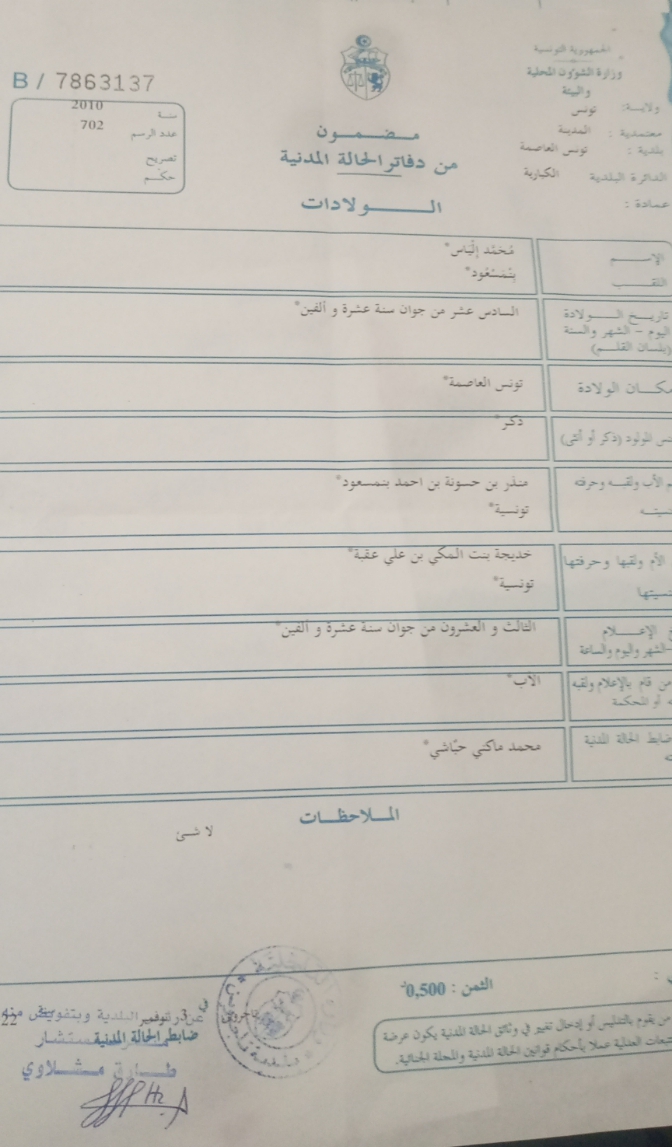 الجمهورية التونسية
وزارة الشؤون المحلية
والبيئة
ولاية: تونس
معتمدية : المدينة
بلدية : تونس العاصمة
الدائرة البلدية الكبارية
عمادة :
B / 7863137
سنة 2010
عدد الرسم 702
تصريح
حكم
مضمون
من دفاتر الحالة المدنية
الولادات
الإسم مُحَمَّد إلْيَاس*
اللقب بِنْمَسْعُود*
تاريخ الولادة السادس عشر من جوان سنة عشرة و ألفين*
اليوم - الشهر والسنة
(بلسان القلم)
مكان الولادة تونس العاصمة*
المولود (ذكر أو أنثى) ذكر*
الأب ولقبه وحرفته منذر بن حسونة بن احمد بنمسعود*
تونسية*
الأم ولقبها وحرفتها خديجة بنت المكي بن علي عقبة*
تونسية*
الإعلام الثالث و العشرون من جوان سنة عشرة و ألفين*
الشهر واليوم والساعة
من قام بالإعلام ولقبه الأب*
أو المحكمة
ضابط الحالة المدنية محمد ماكني حبّاشي*
الملاحظات
لا شئ
الثمن : 0,500
من يقوم بالتدليس أو إدخال تغيير في وثائق الحالة المدنية يكون عرضة
للتتبعات العدلية عملا بأحكام قوانين الحالة المدنية والمجلة الجنائية.
3 نوفمبر
22
ضابط الحالة المدنية
طارق مشلاوي